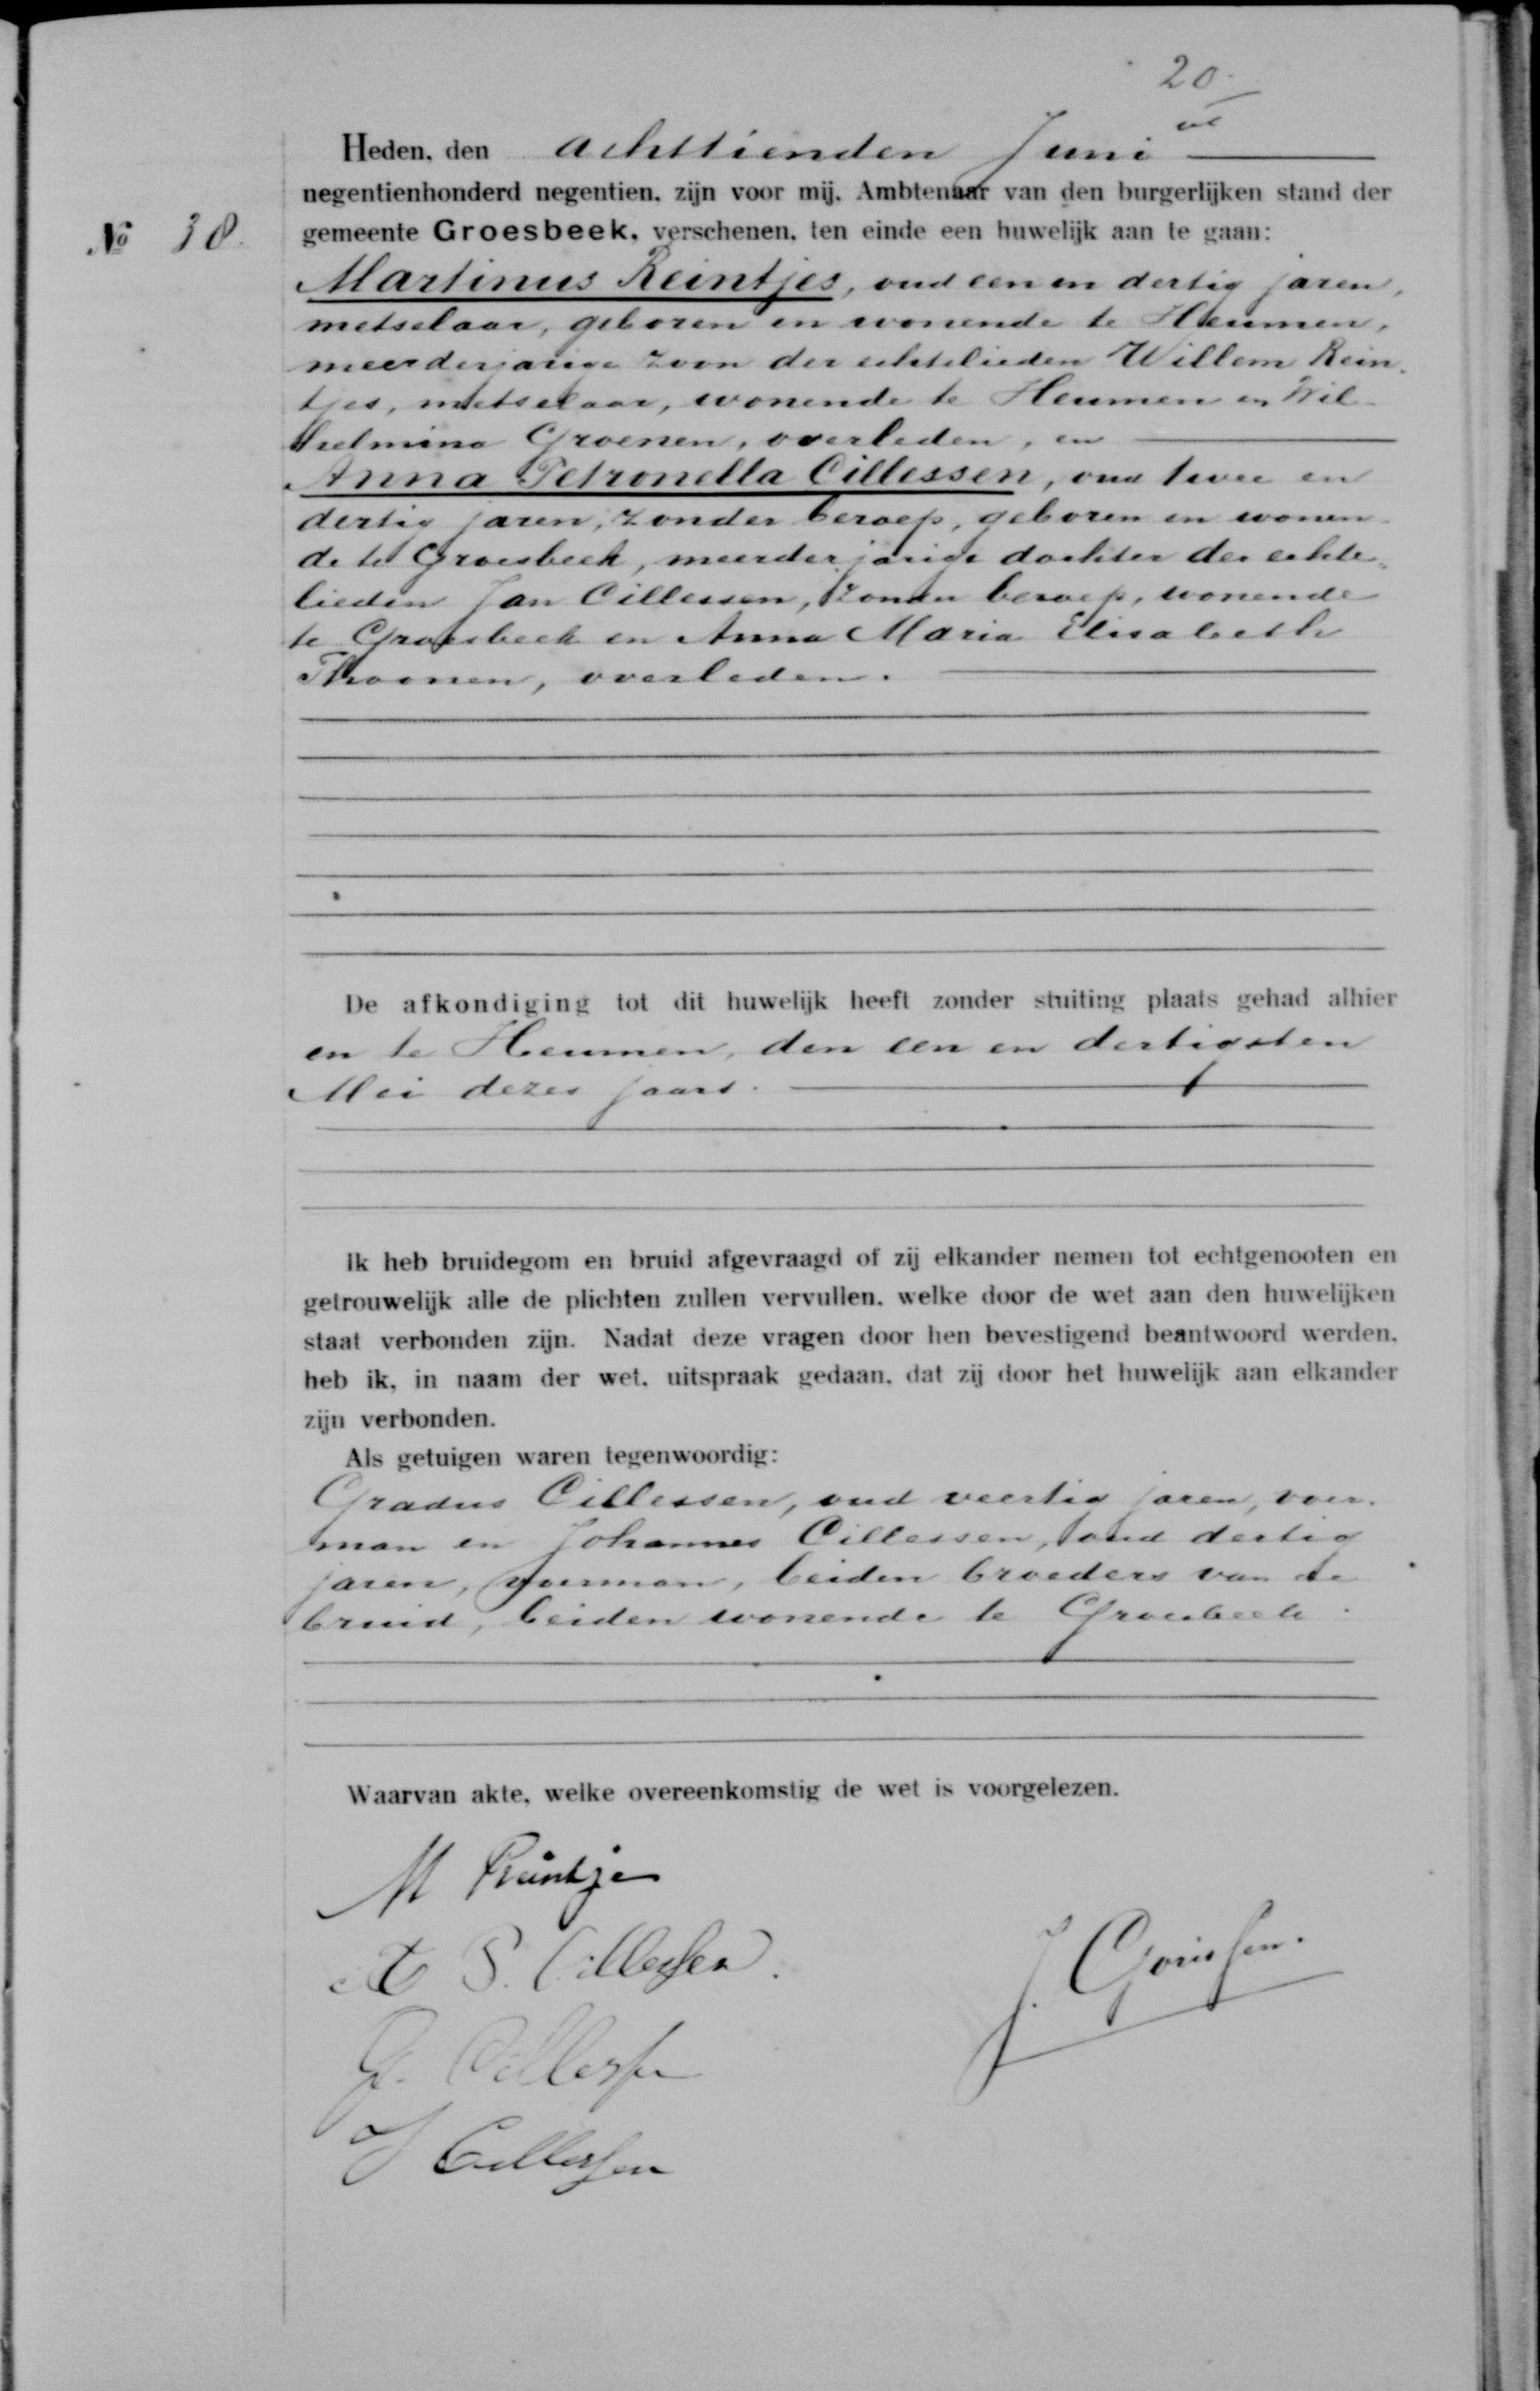 20.
Heden, den achttienden Juni
negentienhonderd negentien, zijn voor mij, Ambtenaar van den burgerlijken stand der
№ 30. gemeente Groesbeek, verschenen, ten einde een huwelijk aan te gaan:
Martinus Reintjes, oud een en dertig jaren,
metselaar, geboren en wonende te Heumen,
meerderjarige zoon der echtelieden Willem Rein-
tjes, metselaar, wonende te Heumen en Wil-
helmina Groenen, overleden, en
Anna Petronella Cillessen, oud twee en
dertig jaren, zonder beroep, geboren en wonen-
de te Groesbeek, meerderjarige dochter der echte-
lieden Jan Cillessen, zonder beroep, wonende
te Groesbeek en Anna Maria Elisabeth
Thoonen, overleden.
De afkondiging tot dit huwelijk heeft zonder stuiting plaats gehad alhier
en te Heumen, den een en dertigsten
Mei dezes jaars.
Ik heb bruidegom en bruid afgevraagd of zij elkander nemen tot echtgenooten en
getrouwelijk alle de plichten zullen vervullen, welke door de wet aan den huwelijken
staat verbonden zijn. Nadat deze vragen door hen bevestigend beantwoord werden,
heb ik, in naam der wet, uitspraak gedaan, dat zij door het huwelijk aan elkander
zijn verbonden.
Als getuigen waren tegenwoordig:
Gradus Cillessen, oud veertig jaren, voer-
man en Johannes Cillessen, oud dertig
jaren, voerman, beiden broeders van de
bruid, beiden wonende te Groesbeek.
Waarvan akte, welke overeenkomstig de wet is voorgelezen.
M Reintjes
A P. Cillessen.
J. Gorissen.
G. Cillessen
J Cillessen